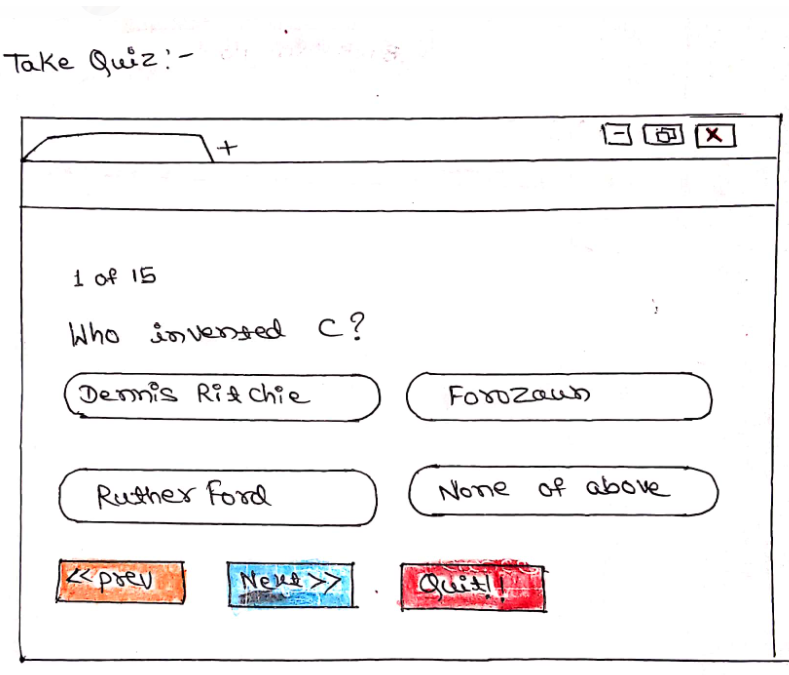 Take Quiz:-
+
1 of 15
Who invented C?
Dennis Ritchie
Forozaun
Rutherford
None of above
<<prev
Next>>
Quit!!